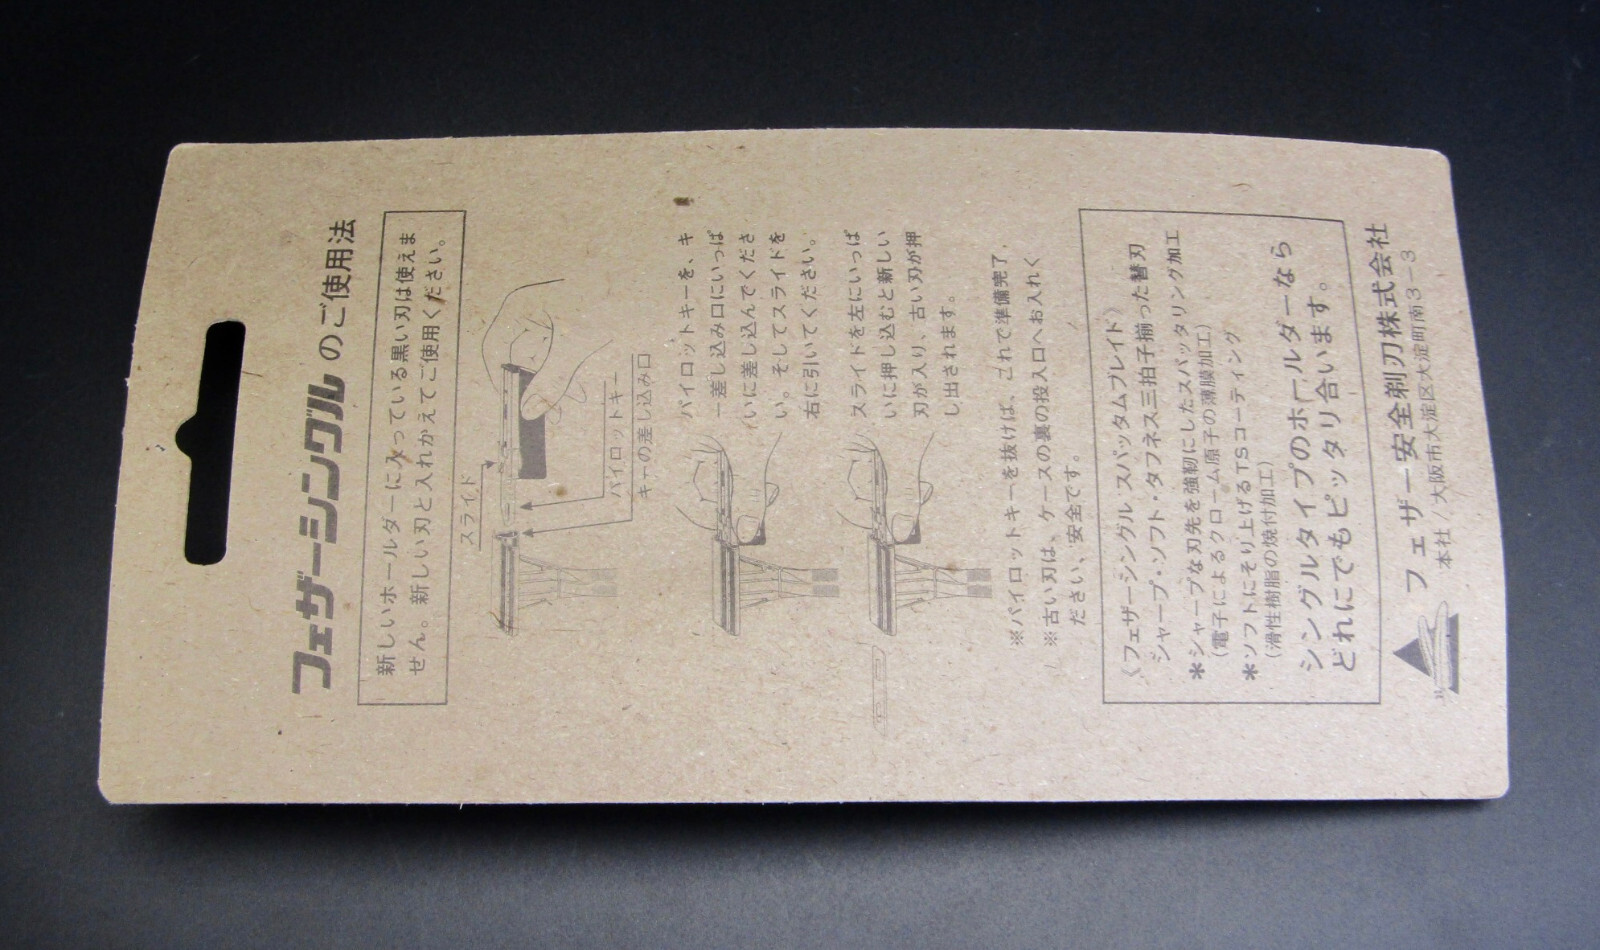 フェザーシングルのご使用法
新しいホールダーに入っている黒い刃は使えま
せん。新しい刃と入れかえてご使用ください。
スライド
パイロットキー
キーの差し込み口
パイロットキーを、キ
ー差し込み口にいっぱ
いに差し込んでくださ
い。そしてスライドを
右に引いてください。
スライドを左にいっぱ
いに押し込むと新しい
刃が入り、古い刃が押
し出されます。
※パイロットキーを抜けば、これで準備完了
※古い刃は、ケースの裏の投入口へお入れく
ださい、安全です。
《フェザーシングル スパッタムブレイド》
シャープ・ソフト・タフネス三拍子揃った替刃
＊シャープな刃先を強靭にしたスパッタリング加工
(電子によるクローム原子の薄膜加工)
＊ソフトにそり上げるTSコーティング
(滑性樹脂の焼付加工)
シングルタイプのホールダーなら
どれにでもピッタリ合います。
フェザー安全剃刀株式会社
本社/大阪市大淀区大淀町南3-3